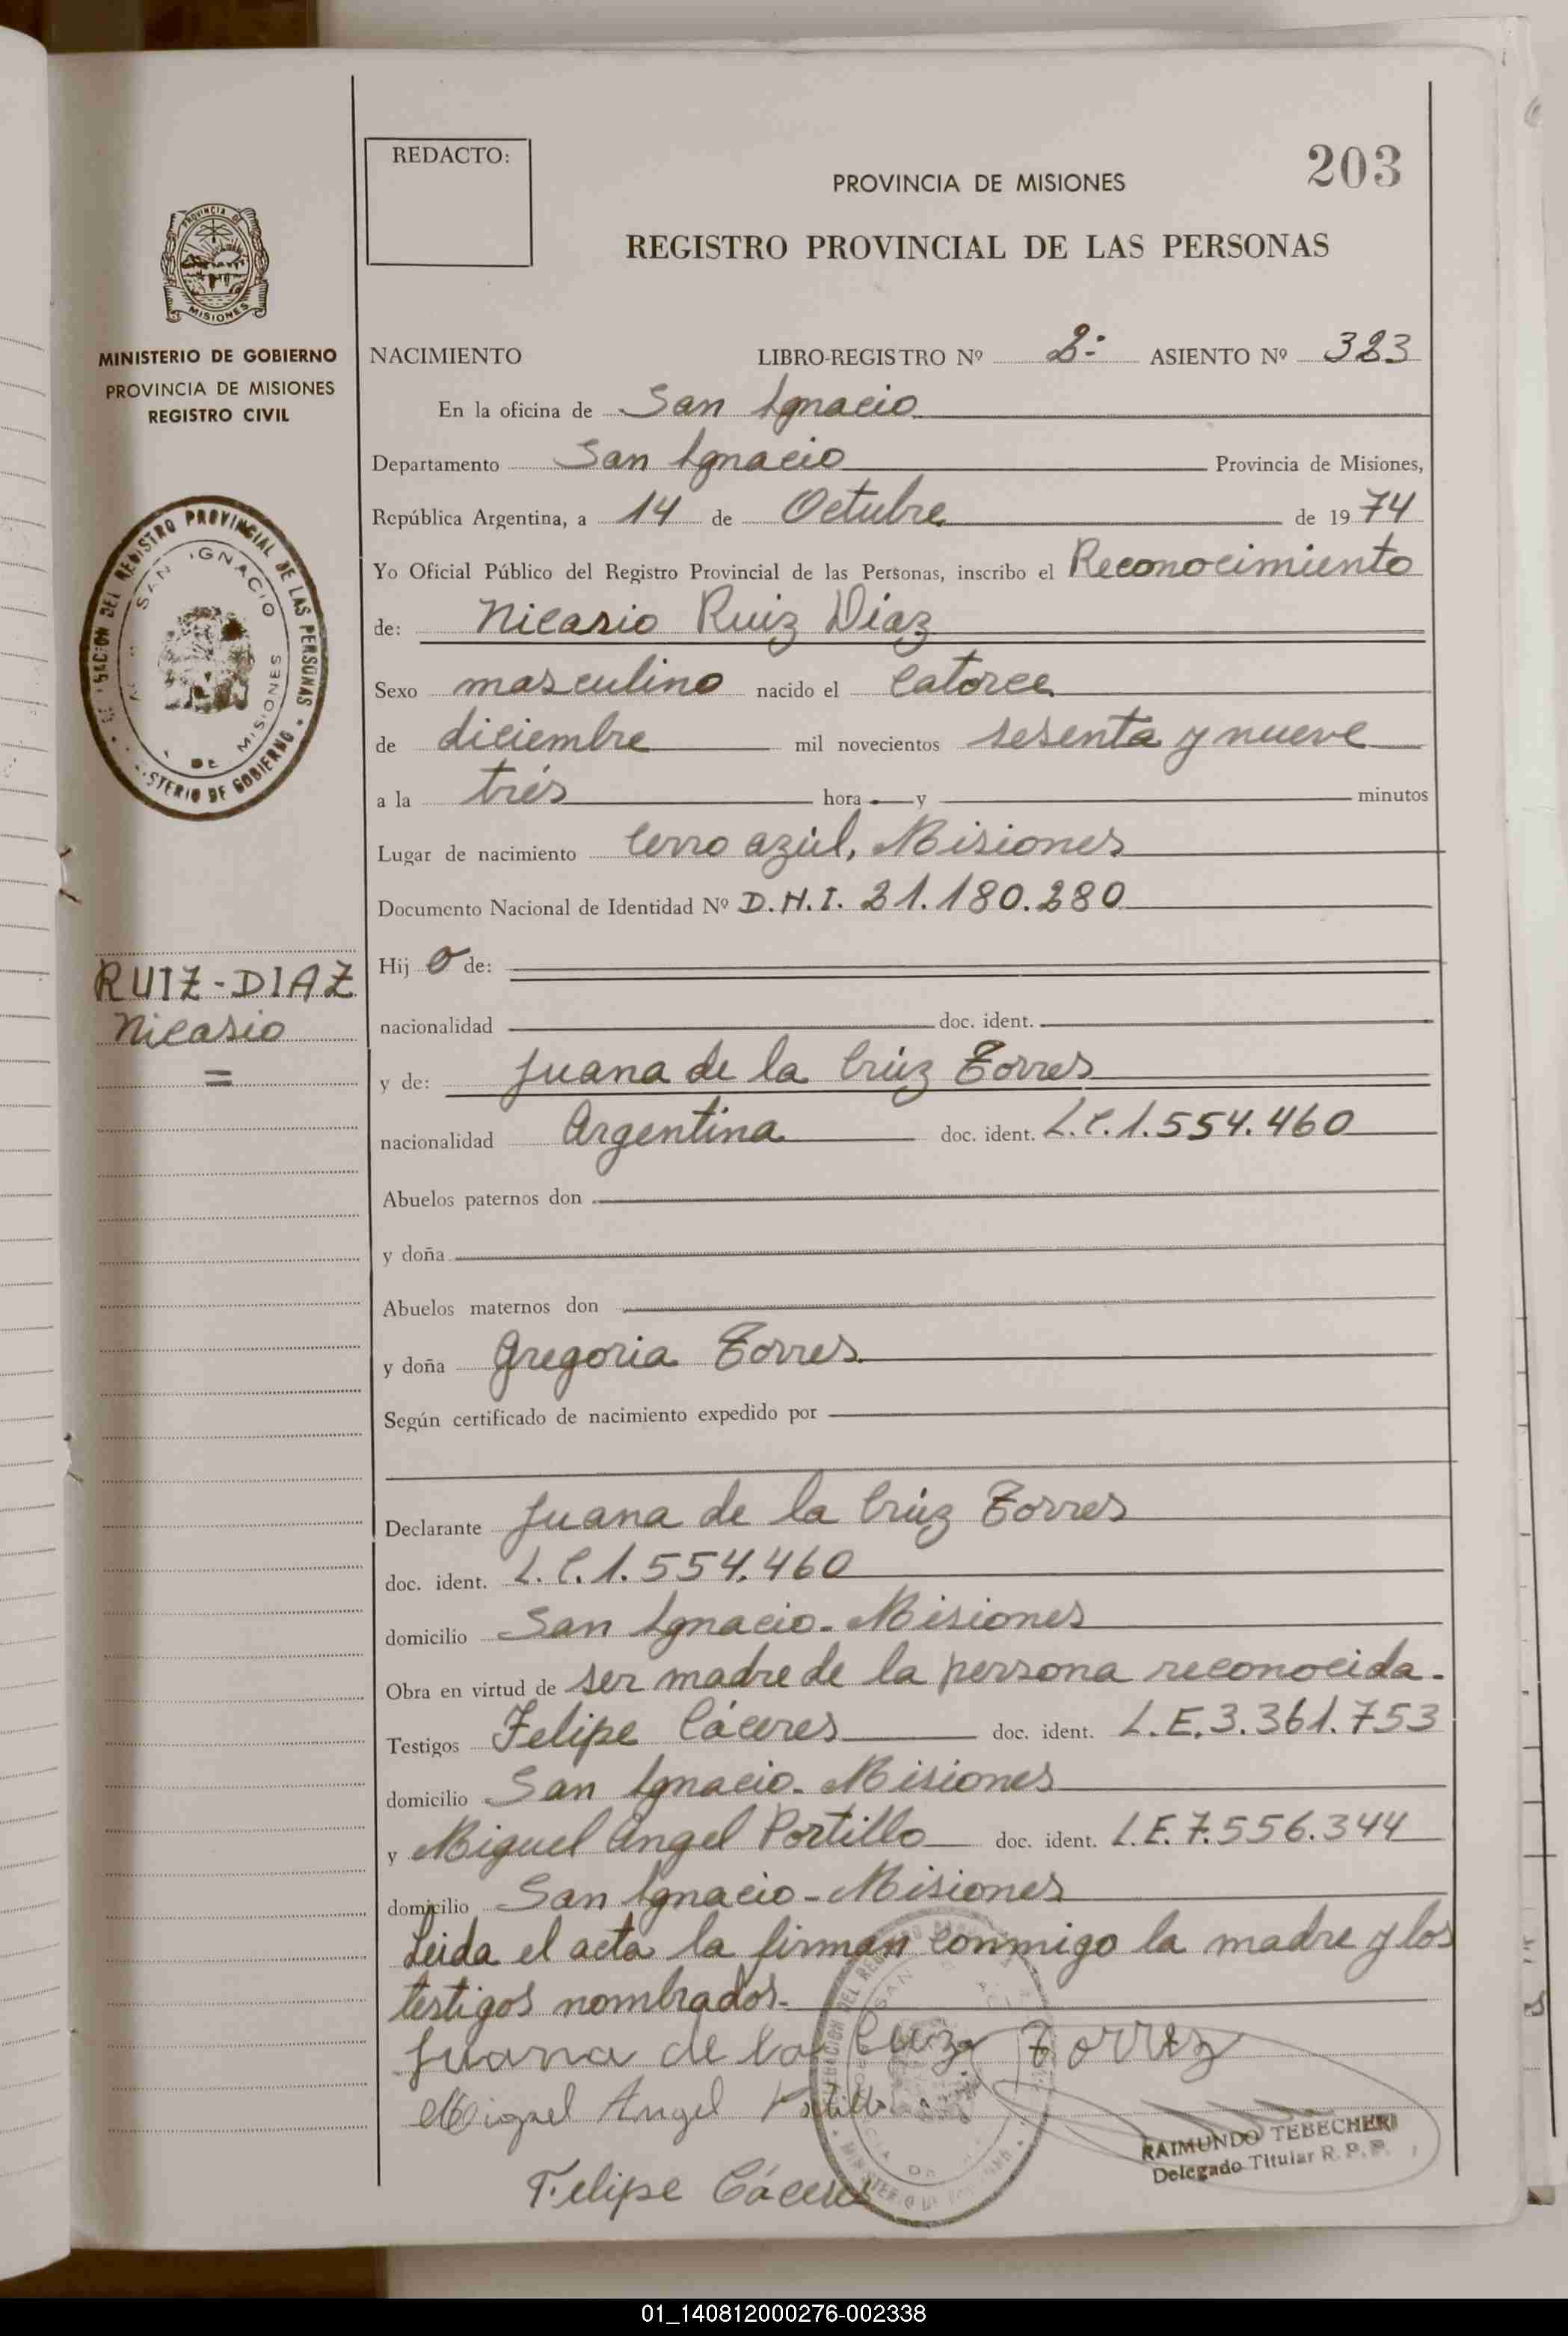 REDACTO:
203
PROVINCIA DE MISIONES
REGISTRO PROVINCIAL DE LAS PERSONAS
PROVINCIA DE
MISIONES
MINISTERIO DE GOBIERNO
PROVINCIA DE MISIONES
REGISTRO CIVIL
NACIMIENTO LIBRO-REGISTRO Nº 2º ASIENTO Nº 323
En la oficina de San Ignacio
Departamento San Ignacio Provincia de Misiones,
República Argentina, a 14 de Octubre de 1974
Yo Oficial Público del Registro Provincial de las Personas, inscribo el Reconocimiento
de: Nicasio Ruiz Díaz
Sexo masculino nacido el Catorce
de diciembre mil novecientos sesenta y nueve
a la trés hora y minutos
Lugar de nacimiento Cerro azúl, Misiones
Documento Nacional de Identidad Nº D.N.I. 21.180.280
Hijo de:
nacionalidad doc. ident.
y de: Juana de la Crúz Torres
nacionalidad Argentina doc. ident. L.C.1.554.460
Abuelos paternos don
y doña
Abuelos maternos don
y doña Gregoria Torres
Según certificado de nacimiento expedido por
Declarante Juana de la Crúz Torres
doc. ident. L.C.1.554.460
domicilio San Ignacio. Misiones
Obra en virtud de ser madre de la persona reconocida.
Testigos Felipe Cáceres doc. ident. L.E.3.361.753
domicilio San Ignacio. Misiones
y Miguel Angel Portillo doc. ident. L.E.7.556.344
domicilio San Ignacio-Misiones
Leida el acta la firman conmigo la madre y los
testigos nombrados.
Juana de la Cruz Torrez
Miguel Angel Portillo
RAIMUNDO TEBECHERI
Delegado Titular R. P. P.
Felipe Cáceres
DEL REGISTRO PROVINCIAL DE LAS PERSONAS
SAN IGNACIO
DE MISIONES
DE GOBIERNO
RUIZ-DIAZ
Nicasio
=
01_140812000276-002338